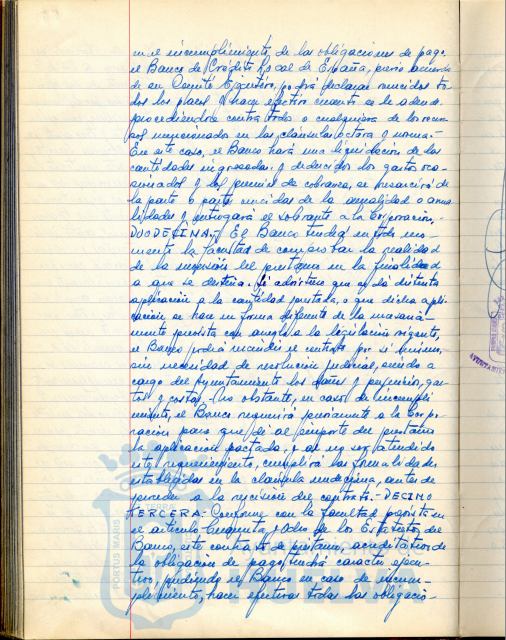 en el incumplimiento, de las obligaciones de pago,
el Banco de Crédito Local de España, previo acuerdo
de su Comité Ejecutivo, podrá declarar vencidos to-
dos los plazos y hacer efectivo cuanto se le adeude
procediéndose contra todos o cualquiera de los recur-
sos mencionados en las cláusulas octava y novena.-
En este caso, el Banco hará una liquidación de las
cantidades ingresadas y deducidos los gastos oca-
sionados y el premio de cobranza, se resarcirá de
la parte o partes vencidas de la anualidad o anua-
lidades y entregará el sobrante a la Corporación.-
DUODECIMA.- El Banco tendrá en todo mo-
mento la facultad de comprobar la realidad
de la inversión del préstamo en la finalidad
a que se destina. Si advirtiera que se dá distinta
aplicación a la cantidad prestada, o que dicha apli-
cación se hace en forma diferente de la
mente prevista con arreglo a la legislación vigente,
el Banco podrá rescindir el contrato por sí mismo,
sin necesidad de resolución judicial, siendo a
cargo del Ayuntamiento los daños y perjuicios, gas-
tos y costas. No obstante, en caso de incumpli-
miento, el Banco requerirá previamente a la Corpo-
ración para que dé al importe del préstamo
la aplicación pactada, y de no ser atendido
este requerimiento, cumplirá las formalidades
establecidas en la cláusula undécima, antes de
proceder a la rescisión del contrato.- DECIMO
TERCERA.- Conforme con la facultad prevista en
el artículo Cincuenta y Ocho de los Estatutos del
Banco, este contrato de préstamo, acreditativo de
la obligación de pago, tendrá carácter ejecu-
tivo, pudiendo el Banco en caso de incum-
plimiento, hacer efectivas todas las obligacio-
PORTUS MARIS